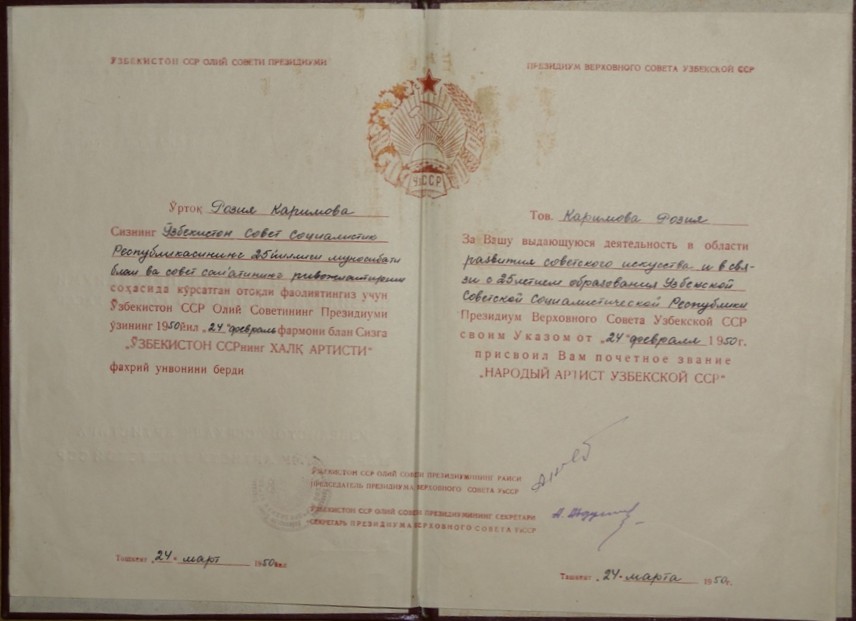 ЎЗБЕКИСТОН ССР ОЛИЙ СОВЕТИ ПРЕЗИДИУМИ
Ўртоқ Розия Каримова
Сизнинг Ўзбекистон Совет Социалистик
Республикасининг 25 йиллиги муносабати
блан ва совет санъатининг ривожлантириш
соҳасида кўрсатган отоқли фаолиятингиз учун
Ўзбекистон ССР Олий Советининг Президиуми
ўзининг 1950йил „24" февраль фармони блан Сизга
„ЎЗБЕКИСТОН ССРнинг ХАЛҚ АРТИСТИ"
фахрий унвонини берди
ПРЕЗИДИУМ ВЕРХОВНОГО СОВЕТА УЗБЕКСКОЙ ССР
Тов. Каримова Розия
За Вашу выдающуюся деятельность в области
развития советского искусства и в свя-
зи с 25летием образования Узбекской
Советской Социалистической Республики
Президиум Верховного Совета Узбекской ССР
своим Указом от „24" февраля 1950г.
присвоил Вам почетное звание
„НАРОДЫЙ АРТИСТ УЗБЕКСКОЙ ССР"
ЎЗБЕКИСТОН ССР ОЛИЙ СОВЕТИ ПРЕЗИДИУМИНИНГ РАИСИ
ПРЕДСЕДАТЕЛЬ ПРЕЗИДИУМА ВЕРХОВНОГО СОВЕТА УзССР
ЎЗБЕКИСТОН ССР ОЛИЙ СОВЕТИ ПРЕЗИДИУМИНИНГ СЕКРЕТАРИ
СЕКРЕТАРЬ ПРЕЗИДИУМА ВЕРХОВНОГО СОВЕТА УзССР
Тошкент „24" март 1950йил
Ташкент „24" марта 1950г.